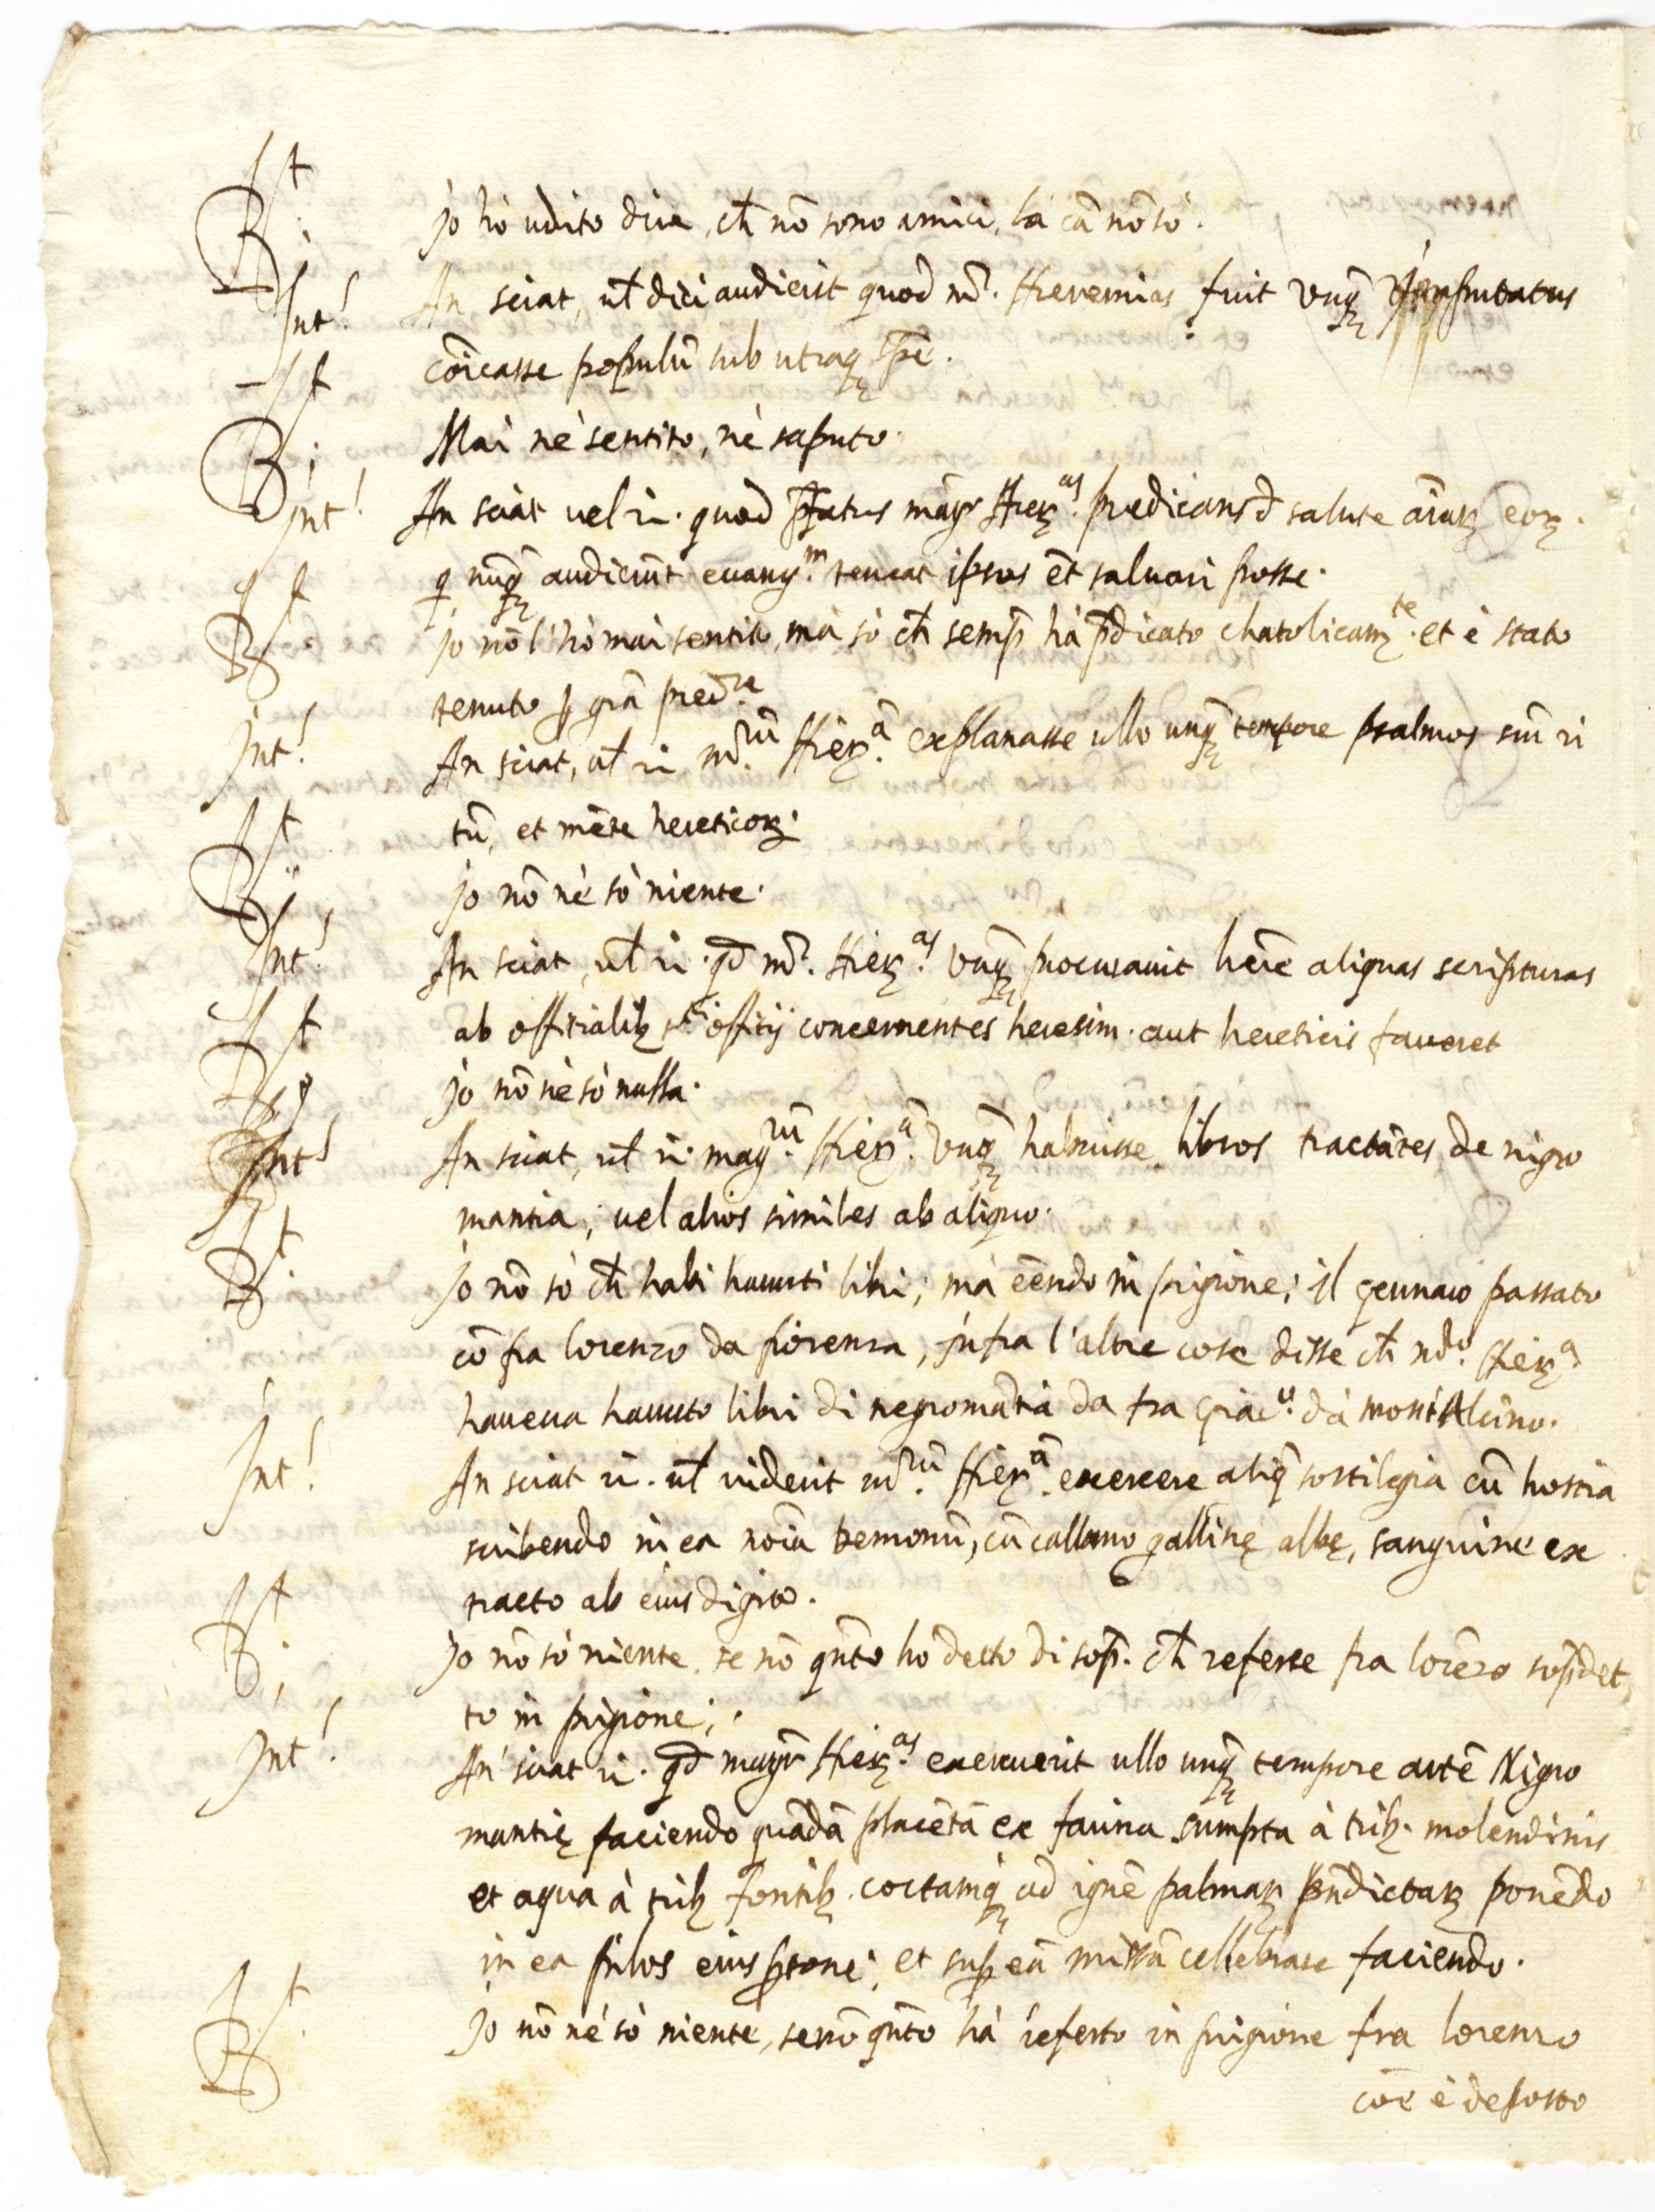 Rt. jo hò udito dire, ch̄ nō sono amici, la cā nō sò.
Int! An sciat, ut̄l dici audierit quod m̄r. Hieremias fuit unq̄
cōicasse populū sub utraq̄ sp̄e.
Rt. Mai nè sentito, nè saputo.
Int! An sciat uel ut. quod p̄fatus mag̃r Hier.as predicans d̄ salute āiar̄ eor̄.
q nūq̄ audierūt euang.m teneat ipsos ēt saluari posse.
Rt jo nō l'hò mai sentito, mà sò ch̄ semp̄ hà p̄dicato chatolicam.te et è stato
tenuto p̱ grā pred.re
Int! An sciat, ut̄l ut m̄.rū Hier.ā explanasse ullo unq̄ tempore psalmos sm̄ ri
tū, et mēte hereticor̄.
Rt jo nō nè sò niente.
Int! An sciat, ut̄l ut. qd̄ m̄r. Hier.as unq̄ procurauit hēre aliquas scripturas
ab offitialib; s.ti offitij concernentes heresim. aut hereticis faueret
Rt jo nō nè sò nulla.
Int! An sciat, ut̄l ut. mag.rū Hier.ā unq̄ habuisse libros tractātes de nigro
mantia, uel alios similes ab aliquo.
Rt. jo nō sò ch̄ habi hauuti libri; mà eēndo in prigione; il gennaio passato
cō fra lorenzo da fiorenza, infra l'altre cose disse ch̄ m̄ro. Hier.a
haueua hauuto libri di negromātia da fra Giac.o dà montAlcino.
Int! An sciat ut. ut̄l uiderit m̄.rū Hier.ā exercere aliq̄ sortilegia cū hostia
scribendo in ea nōia demonū, cū callamo gallinę albę, sanguine ex
tracto ab eius digito.
Rt. jo nō sò niente. se nō quāto ho detto di sop̄. ch̄ referse fra lorēzo sop̄det,
to in prigione;.
Int! An sciat ut. qd̄ mag̃r Hier.as exercuerit ullo unq̄ tempore artē Nigro
mantię faciendo quādā placētā ex farina sumpta à trib;. molendinis
et aqua à trib; fontib;. coctamq̄ ad ignē palmar̄ bn̄dictar̄ ponēdo
in ea pilos eius p̱sone; et sup̱ eā missā cellebrare faciendo.
Rt jo nō nè sò niente, senō quāto hà referto in prigione fra lorenzo
cōe è de sotto